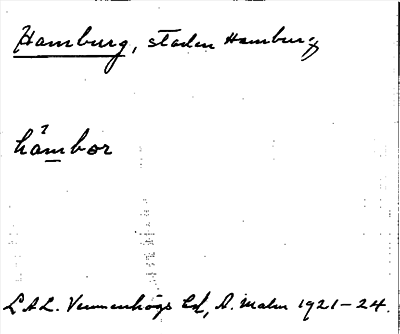 Hamburg, staden Hamburg
håmbor
L.A.L. Vemmenhögs hd, A. Malm 1921-24.